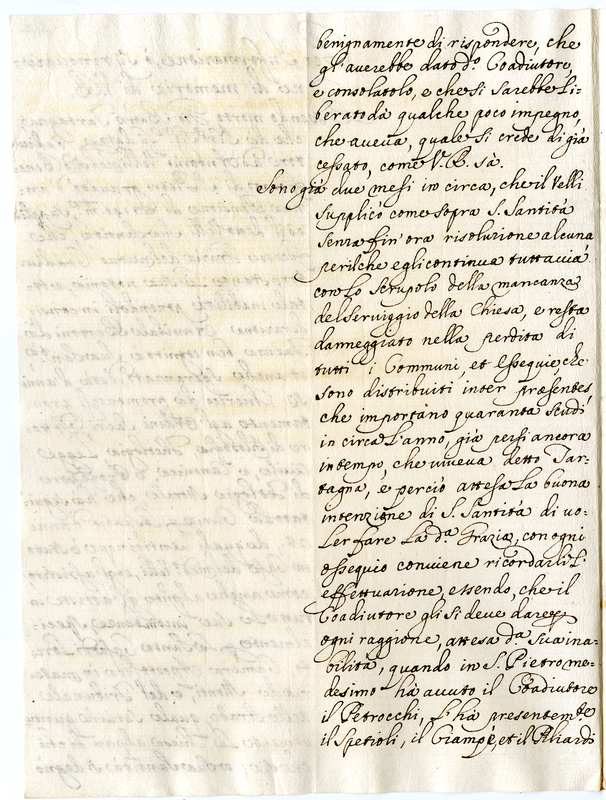 benignamente di rispondere, che
gl'averebbe dato d.º Coadiutore,
e consolatolo, e che si sarebbe li-
berato da qualche poco impegno,
che aveva, quale si crede di già
cessato, come V. B. sà.
Sono già due mesi in circa, che il Velli
supplicò come sopra S. Santità
senza fin'ora risoluzione alcuna
perilche egli continua tuttavia
con lo scrupolo della mancanza
del Serviggio della Chiesa, e resta
danneggiato nella perdita di
tutti i Communi, et essequie, che
sono distribuiti inter præsentes,
che importano quaranta scudi
in circa l'anno, già persi ancora
in tempo, che viveva detto Tar-
tagna, e perciò attesa la buona
intenzione di S. Santità di vo-
ler fare la d.ª Grazia, con ogni
ossequio conviene ricordarli l'
effettuazione, essendo, che il
Coadiutore gli si deve dare
ogni raggione, attesa d.ª sua ina-
bilità, quando in S. Pietro me-
desimo hà avuto il Coadiutore
il Petrocchi, l'hà presentem.te
il Spetioli, il Ciampè, et il